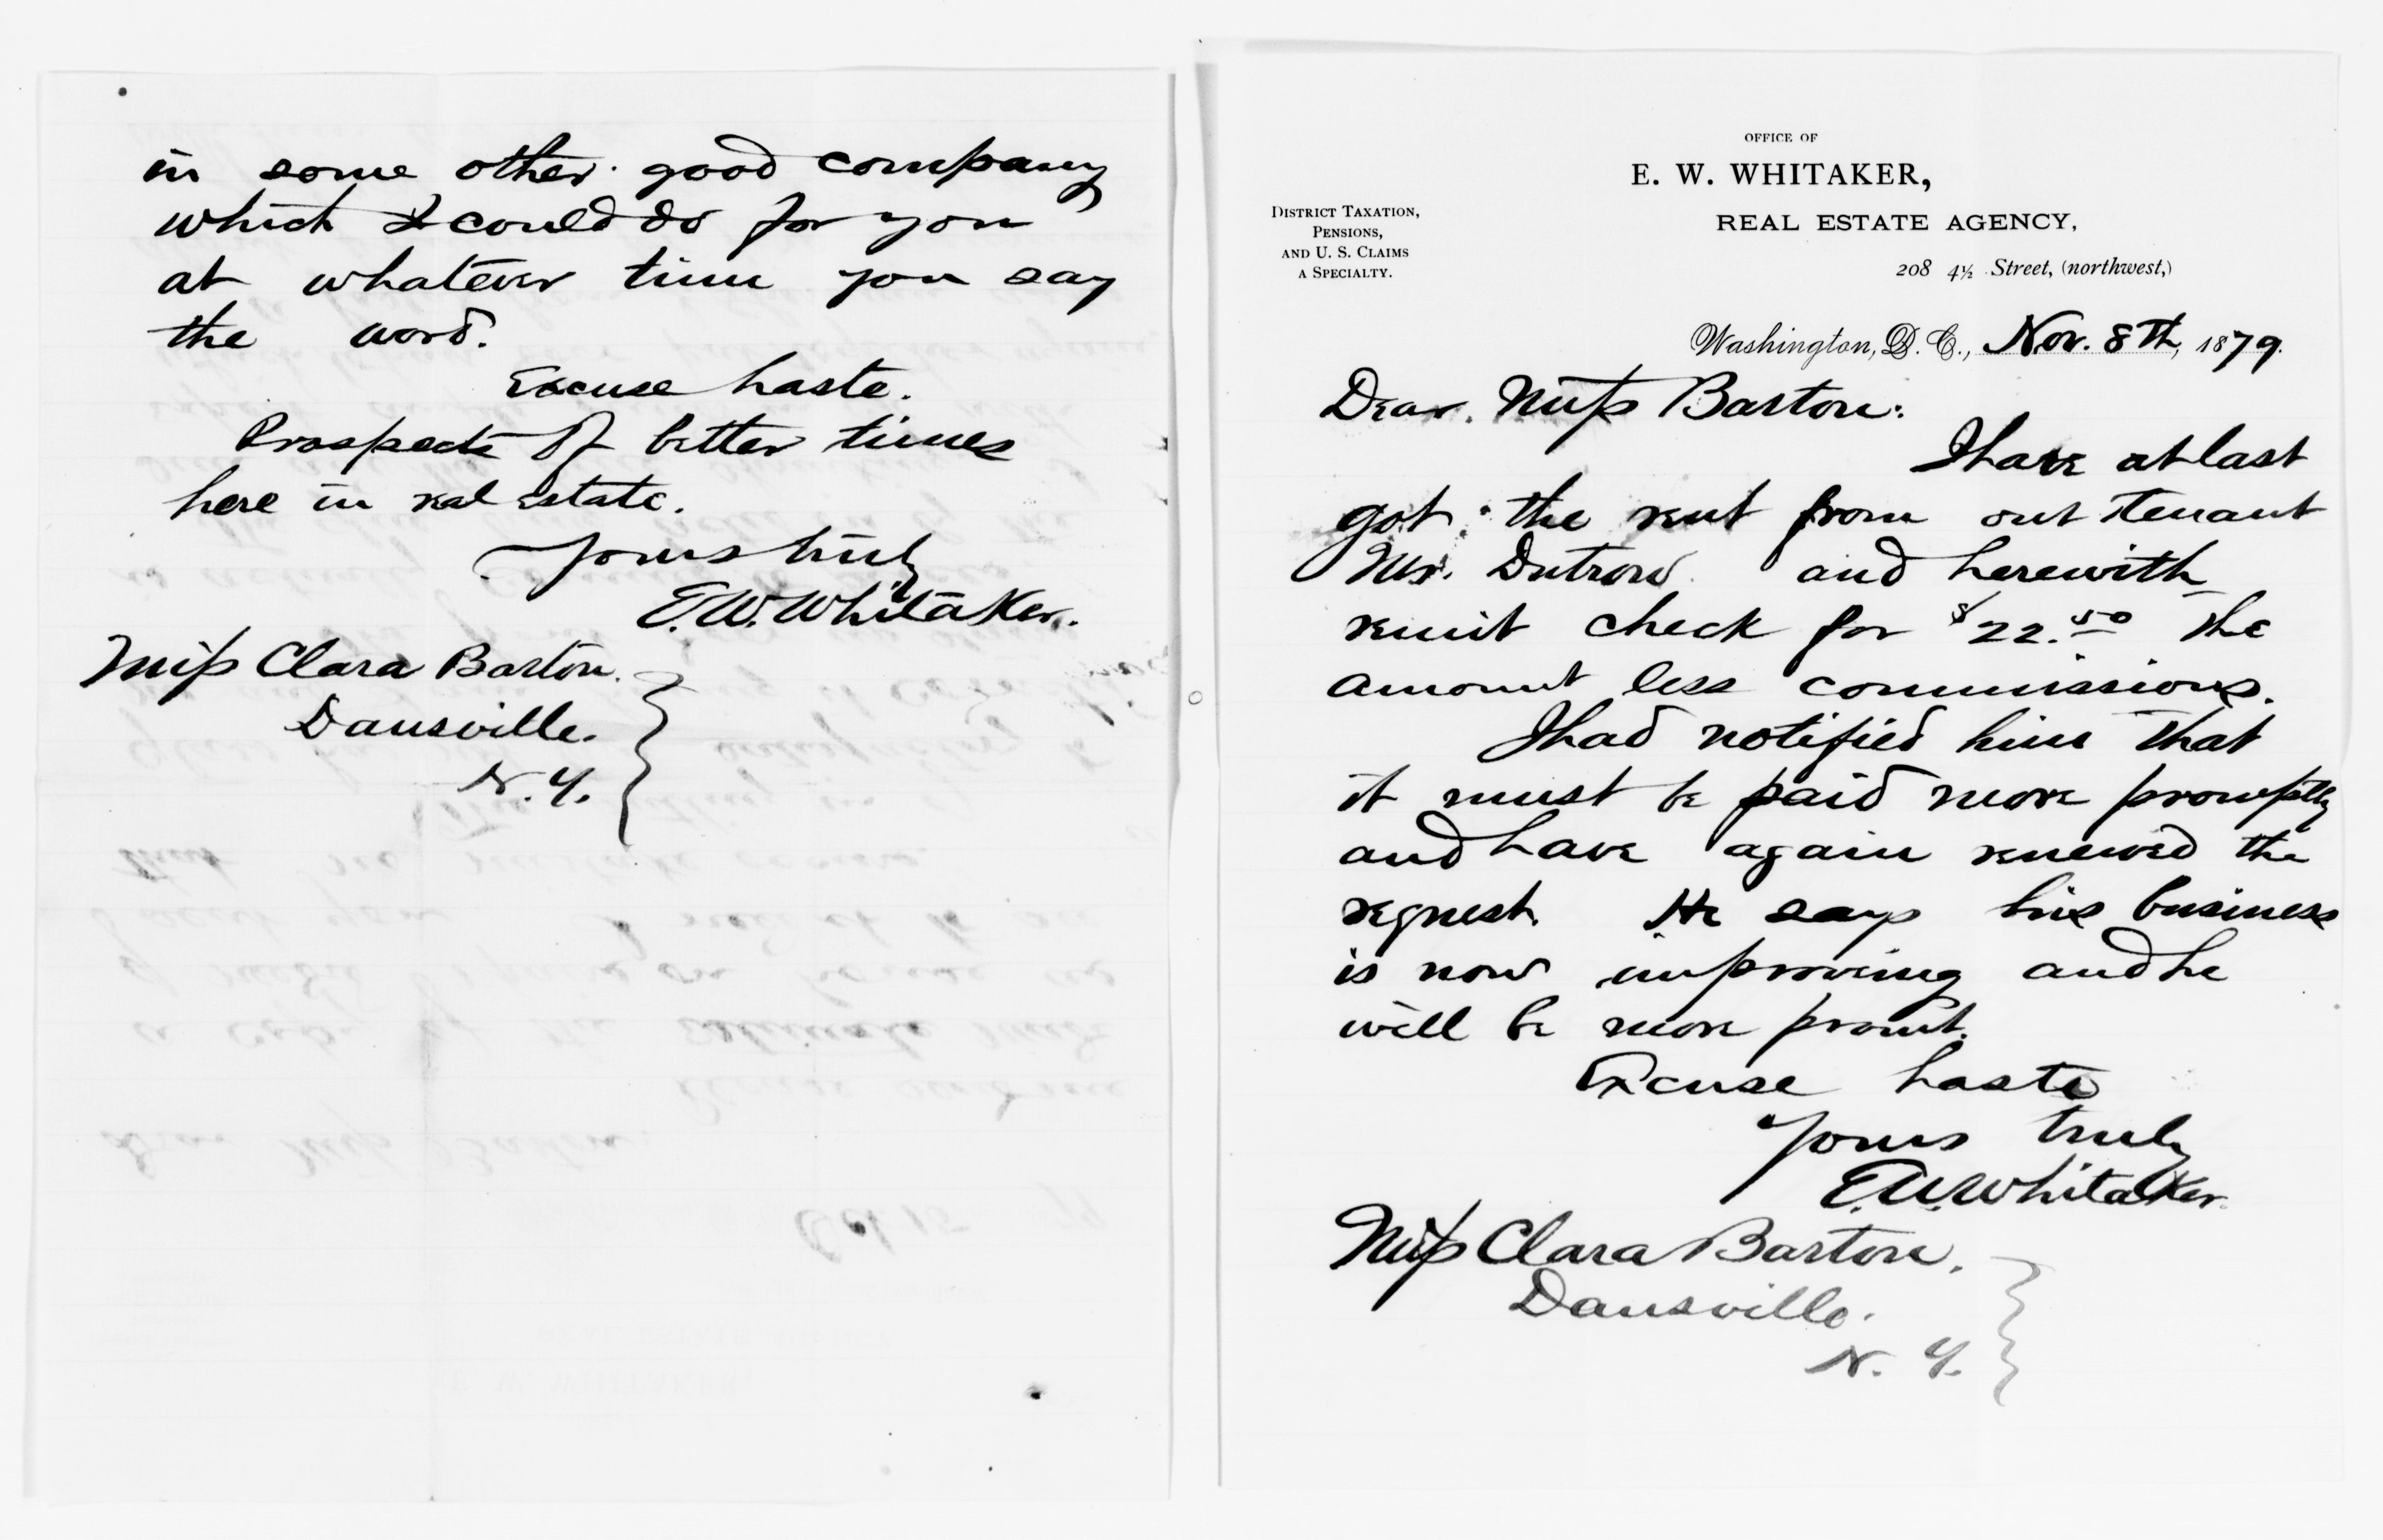 in some other good company
which I could do for you
at whatever time you say
the word.
Excuse haste.
Prospects of better times
here in real estate.
Yours truly
E. W. Whitaker.
Miss Clara Barton.
Dansville.
N. Y.
OFFICE OF
E. W. WHITAKER,
REAL ESTATE AGENCY,
208 4½ Street, (northwest,)
DISTRICT TAXATION,
PENSIONS,
AND U. S. CLAIMS
A SPECIALTY.
Washington, D. C., Nov. 8th, 1879.
Dear Miss Barton:
I have at last
got the rent from out tenant
Mr. Dutrow and herewith
remit check for $22.50 the
amount less commissions.
I had notified him that
it must be paid more promptly
and have again renewed the
request. He says his business
is now improving and he
will be more promt.
Excuse haste
Yours truly
E. W. Whitaker.
Miss Clara Barton.
Dansville.
N. Y.